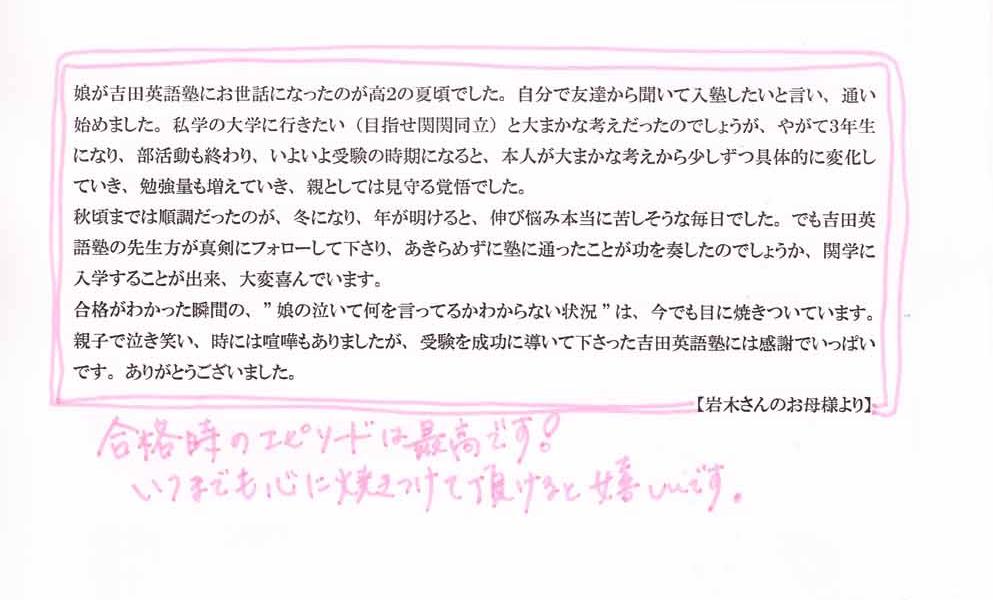 娘が吉田英語塾にお世話になったのが高2の夏頃でした。自分で友達から聞いて入塾したいと言い、通い
始めました。私学の大学に行きたい（目指せ関関同立）と大まかな考えだったのでしょうが、やがて3年生
になり、部活動も終わり、いよいよ受験の時期になると、本人が大まかな考えから少しずつ具体的に変化し
ていき、勉強量も増えていき、親としては見守る覚悟でした。
秋頃までは順調だったのが、冬になり、年が明けると、伸び悩み本当に苦しそうな毎日でした。でも吉田英
語塾の先生方が真剣にフォローして下さり、あきらめずに塾に通ったことが功を奏したのでしょうか、関学に
入学することが出来、大変喜んでいます。
合格がわかった瞬間の、”娘の泣いて何を言ってるかわからない状況”は、今でも目に焼きついています。
親子で泣き笑い、時には喧嘩もありましたが、受験を成功に導いて下さった吉田英語塾には感謝でいっぱい
です。ありがとうございました。
【岩木さんのお母様より】
合格時のエピソードは最高です!
いつまでも心に焼きつけて頂けると嬉しいです。